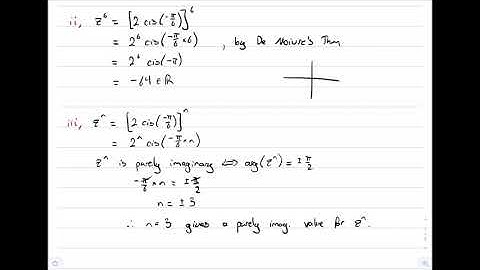 ii, z⁶ = [2 cis(-π/6)]⁶
= 2⁶ cis(-π/6 ×6) , by De Moivre's Thm
= 2⁶ cis(-π)
= -64 ∈ ℝ
iii, zⁿ = [2 cis(-π/6)]ⁿ
= 2ⁿ cis(-π/6 ×n)
zⁿ is purely imaginary ⟺ arg(zⁿ) = ± π/2
-π/6 × n = ± π/2
n = ± 3
∴ n = 3 gives a purely imag. value for zⁿ.